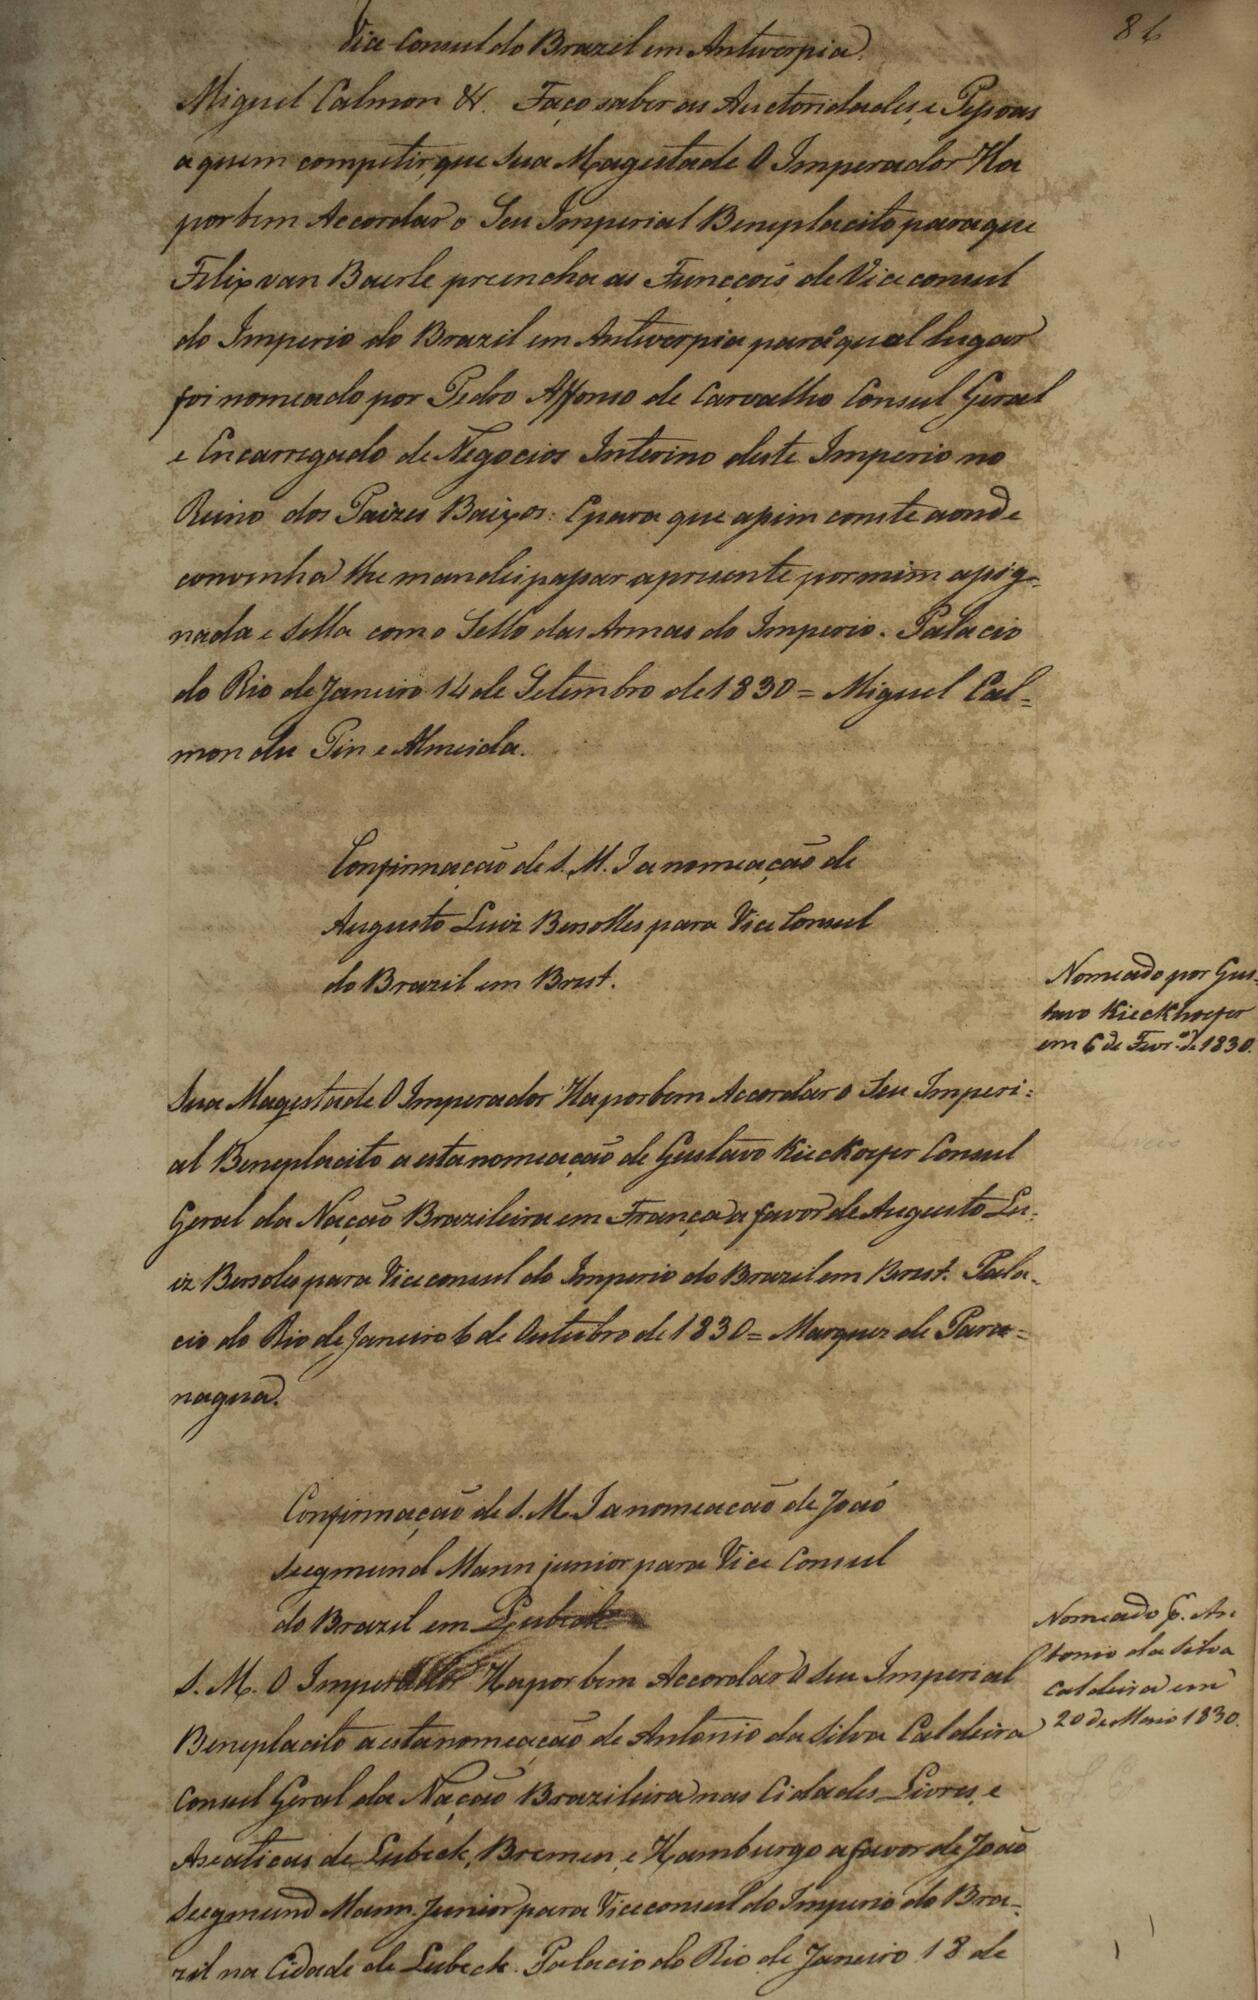 86
Vice Consul do Brazil em Antwerpia.
Miguel Calmon &. Faço saber as Auctoridades, e Pessoas
a quem competir, que Sua Magestade O Imperador Ha
por bem Accordar o Seu Imperial Beneplacito para que
Felix van Baerle preencha as Funcções de Vice consul
do Imperio do Brazil em Antwerpia para o qual lugar
foi nomeado por Pedro Affonso de Carvalho Consul Geral
e Encarregado de Negocios Interino deste Imperio no
Reino dos Paizes Baixos: E para que assim conste aonde
convenha lhe mandei passar a presente por mim assig-
nada e sella com o Sello das Armas do Imperio. Palacio
do Rio de Janeiro 14 de Setembro de 1830 = Miguel Cal=
mon du Pin e Almeida.
Confirmação de S. M. I a nomeação de
Augusto Luiz Bersolles para Vice Consul
do Brazil em Brest.
Nomeado por Gus-
tavo Kieckhoefer
em 6 de Fevr.º de 1830.
Sua Magestade O Imperador Ha por bem Accordar o Seu Imperi=
al Beneplacito a esta nomeação de Gustavo Kieckoefer Consul
Geral da Nação Brazileira em França a favor de Augusto Lu-
iz Bersoles para Vice consul do Imperio do Brazil em Brest. Pala-
cio do Rio de Janeiro 6 de Outubro de 1830 = Marquez de Para=
nagua.
Confirmação de S. M. I a nomeacão de João
Seegmund Mann junior para Vice Consul
do Brazil em Lubeck
Nomeado p. An
tonio da Silva
Caldeira em
20 de Maio 1830.
S. M. O Imperador Ha por bem Accordar O seu Imperial
Beneplacito a esta nomeação de Antonio da Silva Caldeira
Consul Geral da Nação Brazileira nas Cidades Livres, e
Aseaticas de Lubeck, Bremen, e Hamburgo a favor de João
Seegmund Mann Junior para Vice consul do Imperio do Bra-
zil na Cidade de Lubeck. Palacio do Rio de Janeiro 18 de